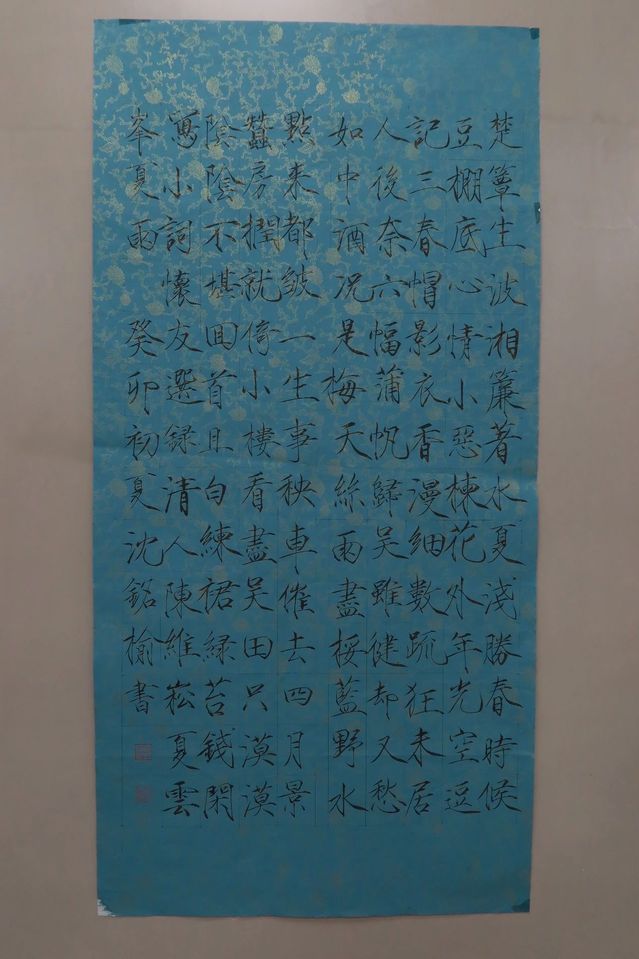 楚簟生波湘簾著水夏淺勝春時候
豆棚底心情小惡楝花外年光空逗
記三春帽影衣香漫細數疏狂未居
人後奈六幅蒲帆歸吳雖健却又愁
如中酒況是梅天絲雨盡挼藍野水
點来都皴一生事秧車催去四月景
蠶房撋就倚小樓看盡吳田只漠漠
陰陰不堪囬首且白練裙緑苔錢閑
寫小詞懷友選録清人陳維崧夏雲
峯夏雨 癸卯初夏沈銘榆書